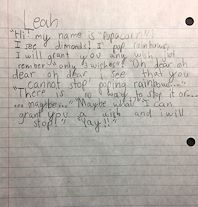 Leah
"Hi! my name is "Papacorn"!
I see dimonds! I pop rainbows,
I will grant you any wish just
rember "only 3 wishes"! "Oh dear oh
dear oh dear I see that you
cannot stop" poping rainbows..."
"There is no way to stop it or....
... maybe..." "Maybe what" I can
grant you a wish and i will
stop!" "Yay!!"